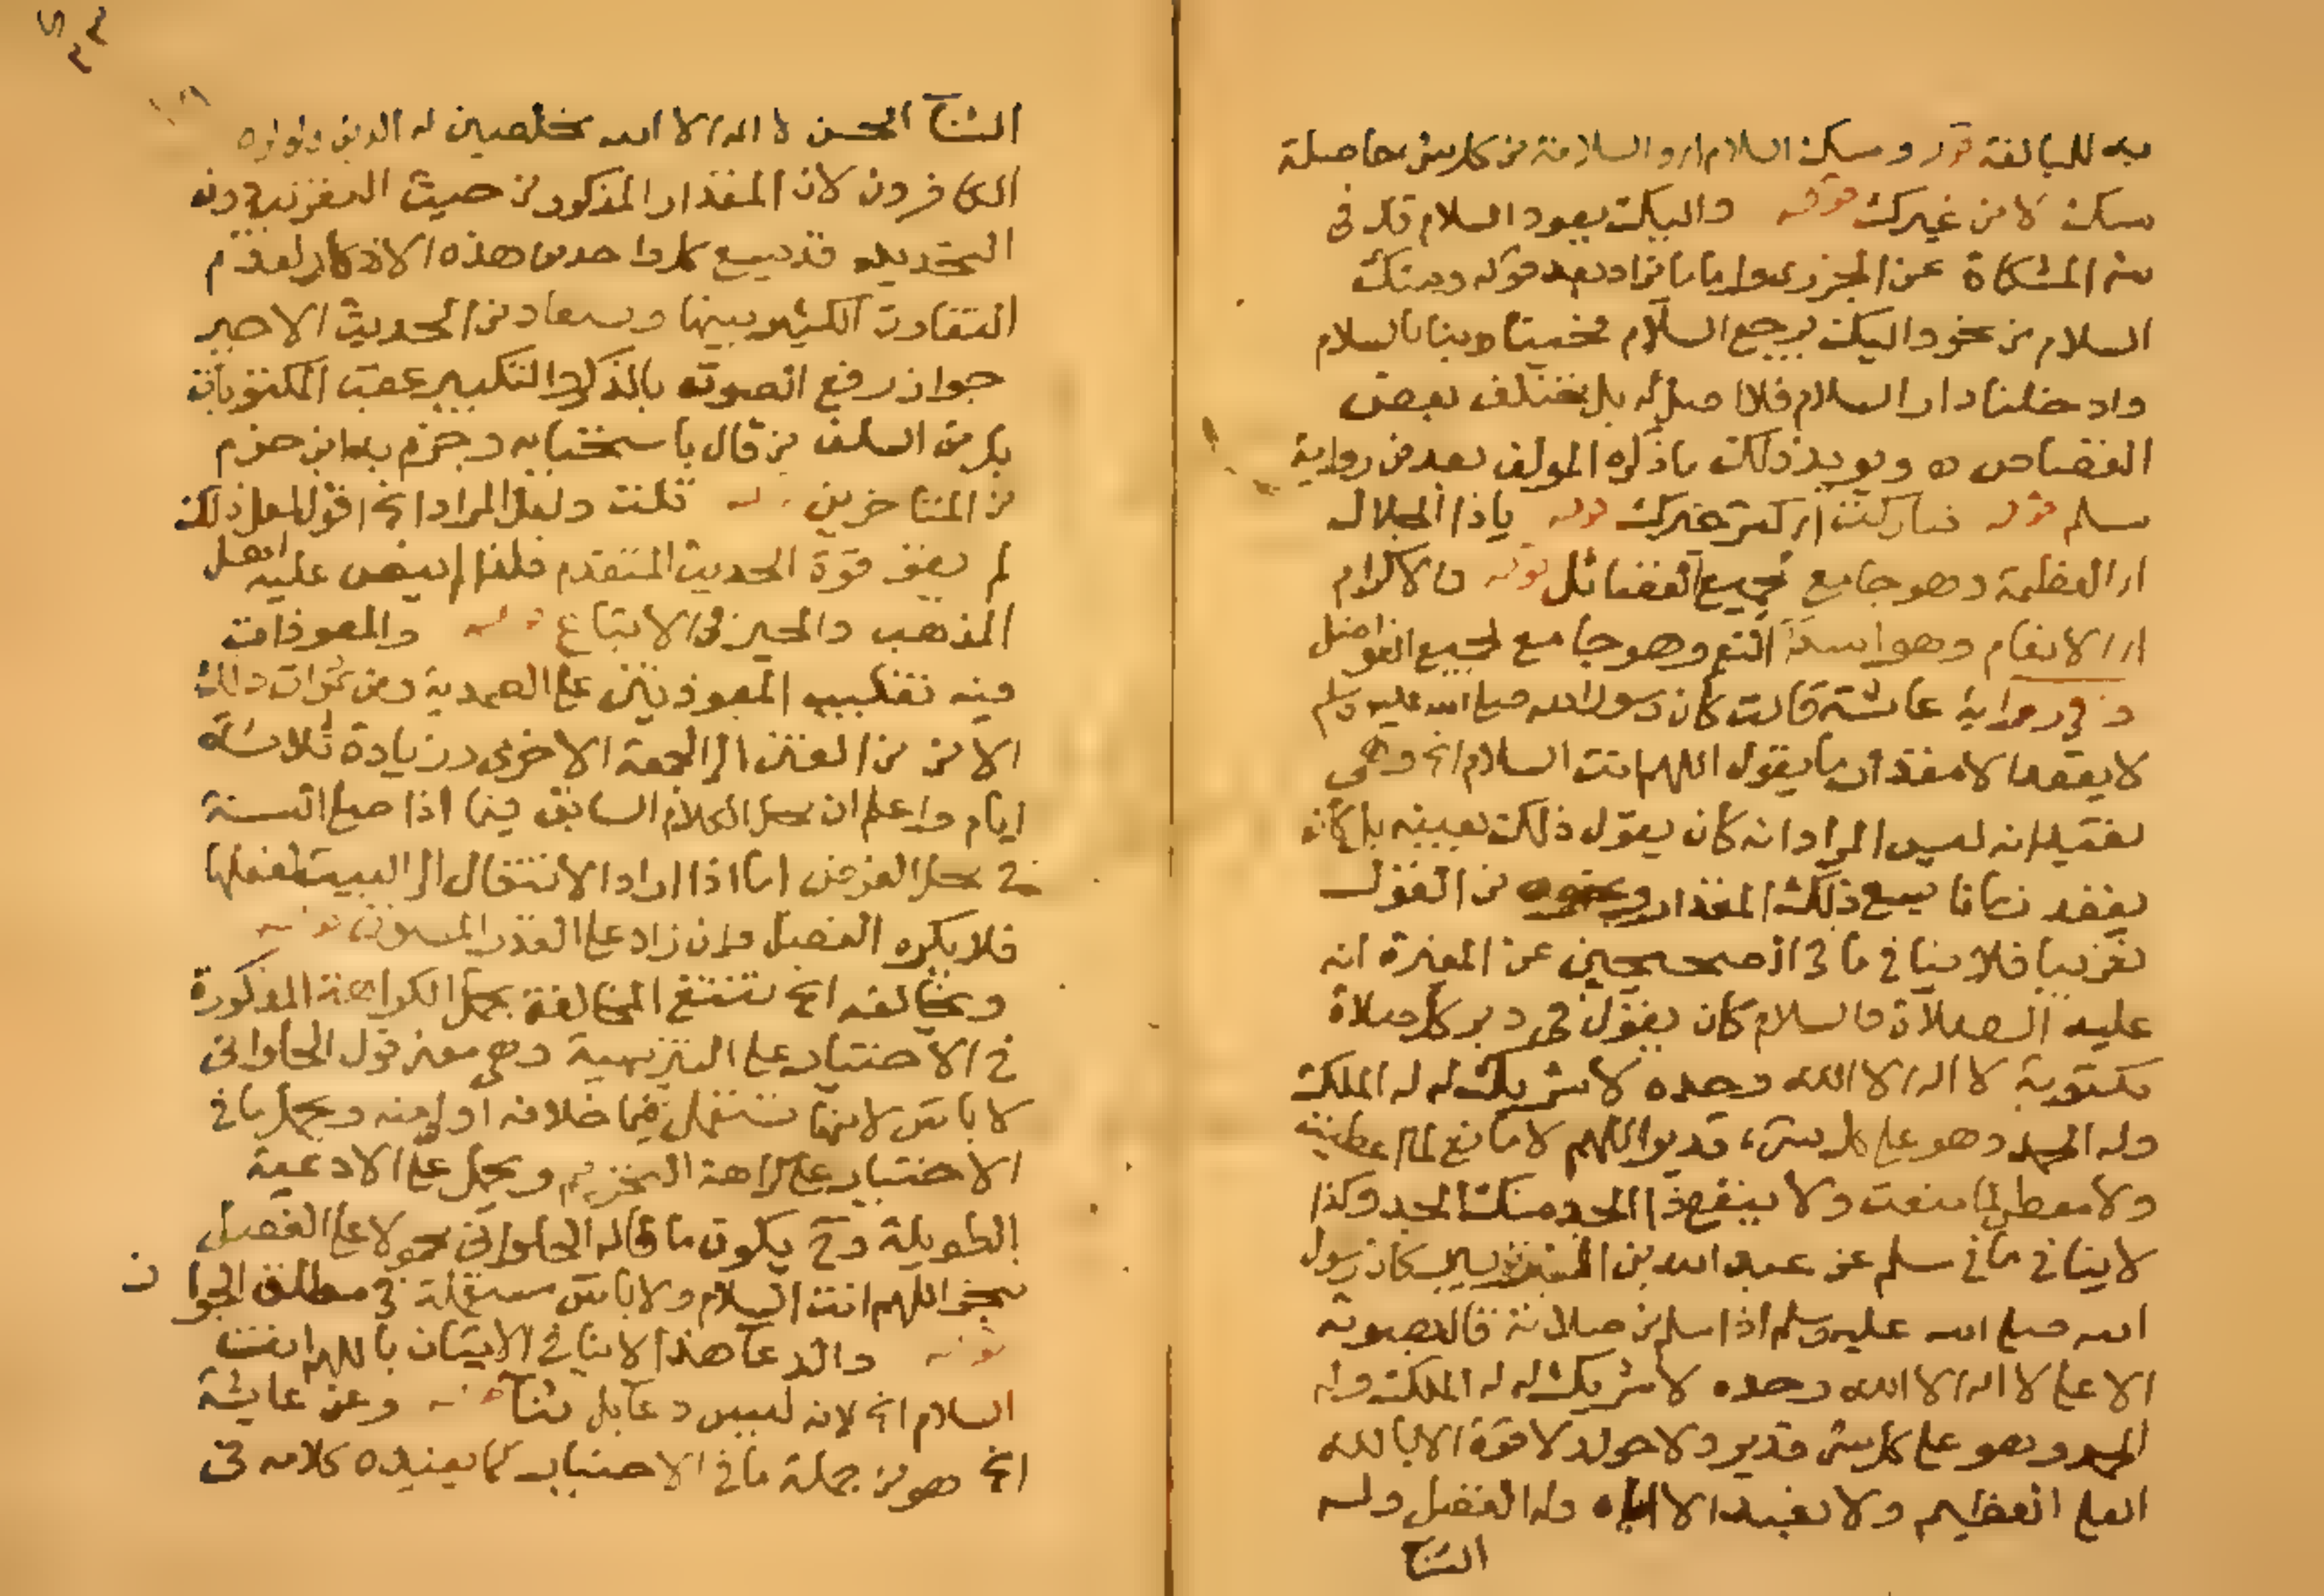 به للمبالغة قوله ومنك السلام اي والسلامة من كل شي حاصلة
منك لا من غيرك قوله واليك يعود السلام قال في
شرح المشكاة عن الجزري واما ما يزاد بعد قوله ومنك
السلام من نحو واليك يرجع السلام فحينا ربنا بالسلام
وادخلنا دار السلام فلا اصل له بل مختلق بعض
القصاص ه ويويد ذلك ما ذكره المولف بعد من رواية
مسلم قوله تباركت اي خيرك قوله ياذا الجلال
اي العظمة وهو جامع لجميع الفضائل قوله والاكرام
اي الانعام وهو اسداء النعم وهو جامع لجميع الفواضل
وفي رواية عائشة قالت كان رسول الله صلى الله عليه وسلم
لا يقعد الا مقدار ما يقول اللهم انت السلام الخ وهي
تفيد انه ليس المراد انه كان يقول ذلك بعينه بل كان
يقعد زمانا يسع ذلك المقدار ونحوه من القول
تقريبا فلا ينافي ما في الصحيحين عن المغيرة انه
عليه الصلاة والسلام كان يقول في دبر كل صلاة
مكتوبة لا اله الا الله وحده لا شريك له له الملك
وله الحمد وهو على كل شي قدير اللهم لا مانع لما اعطيت
ولا معطي لما منعت ولا ينفع ذا الجد منك الجد وكذا
لا ينافي ما في مسلم عن عبد الله بن الزبير كان رسول
الله صلى الله عليه وسلم اذا سلم من صلاته قال بصوته
الاعلى لا اله الا الله وحده لا شريك له له الملك وله
الحمد وهو على كل شي قدير ولا حول ولا قوة الا بالله
العلي العظيم ولا نعبد الا اياه وله الفضل وله
الثنا
الثنا الحسن لا اله الا الله مخلصين له الدين ولو كره
الكافرون لان المقدار المذكور من حيث التقريب دون
التحديد قد يسع كل واحد من هذه الاذكار لعدم
التفاوت الكثير بينها ويستفاد من الحديث الاخير
جواز رفع الصوت بالذكر والتكبير عقب المكتوبات
بل من السلف من قال باستحبابه وجزم به ابن حزم
من المتاخرين قوله قلت ولعل المراد الخ اقول لعل ذلك
لم يقو قوة الحديث المتقدم فلذا لم ينص عليه اهل
المذهب والخير في الاتباع قوله والمعوذات
فيه تغليب المعوذتين على الصمدية ومن ثمرات ذلك
الامن من الفتن الى الجمعة الاخرى وزيادة ثلاثة
ايام واعلم ان محل الكلام السابق فيما اذا صلى السنة
في محل الفرض اما اذا اراد الانتقال الى البيت لفعلها
فلا يكره الفصل وان زاد على القدر المسنون قوله
وتخالفه الخ تنتفي المخالفة بحمل الكراهة المذكورة
في الاختيار على التنزيهية وهي معنى قول الحلواني
لا باس لانها تستعمل فيما خلافه اولى منه ويحمل ما في
الاختيار على كراهة التحريم ويحمل على الادعية
الطويلة وح يكون ما قاله الحلواني محمولا على الفصل
بنحو اللهم انت السلام ولا باس مستعملة في مطلق الجواز
قوله والدعاء هذا لا ينافي الاتيان باللهم انت
السلام الخ لانه ليس دعا بل ثنا قوله وعن عايشة
الخ هو من جملة ما في الاختيار كما يفيده كلامه في